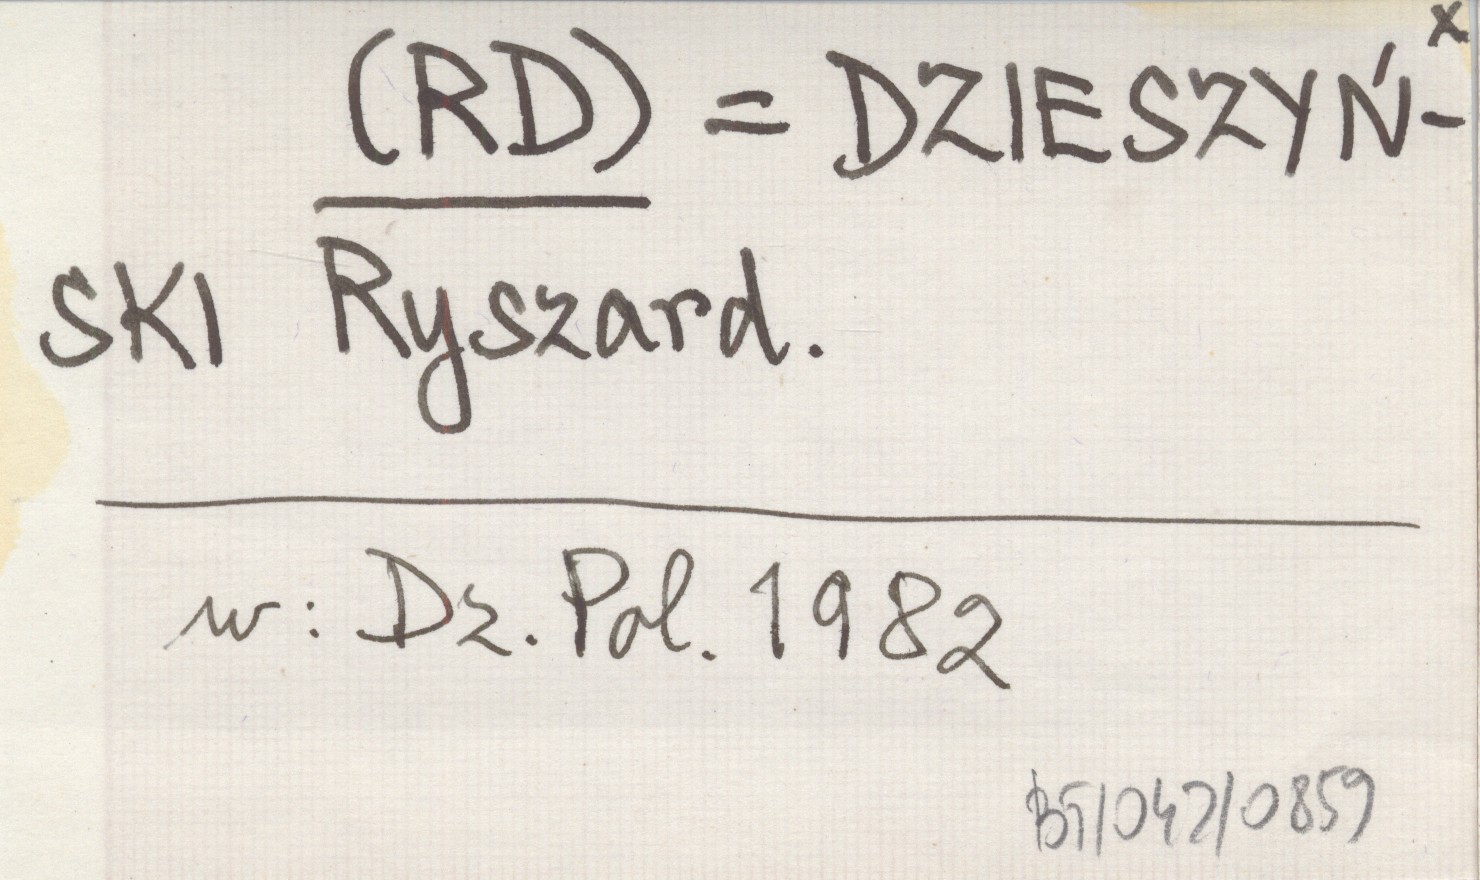 (RD) = DZIESZYŃ-ˣ
SKI Ryszard.
w: Dz. Pol. 1982
BT/042/0859